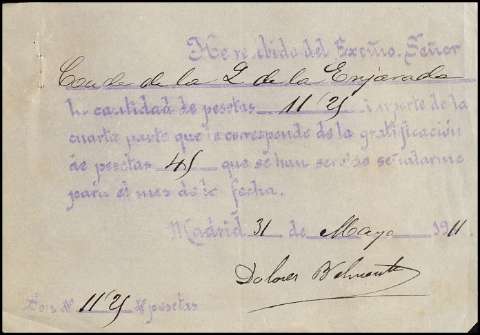 He recibido del Excmo. Señor
Conde de la Q de la Enjarada
la cantidad de pesetas 11'25 importe de la
cuarta parte que le corresponde de la gratificación
de pesetas 45 que se han servido señalarme
para el mes de la fecha.
Madrid 31 de Mayo 1911.
Dolores Belmonte
Son # 11'25 # pesetas